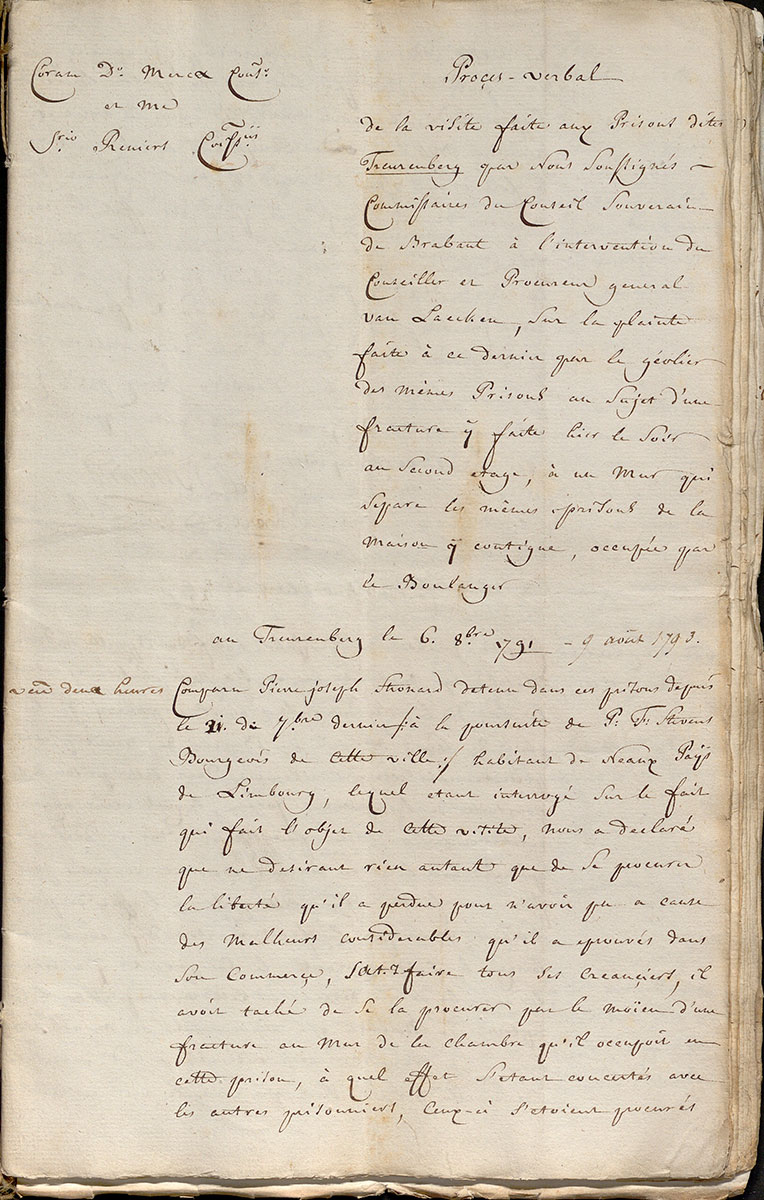 Coram Do. Merex Consr.
et me
Srio Reniers Comssiis
Proçes-verbal
de la visite faite aux Prisons dites
Treurenberg par Nous Soussignés
Commissaires du Conseil Souverain
de Brabant à l'intervention du
Conseiller et Procureur general
van Laecken, Sur la plainte
faite à ce dernier par le géolier
des mêmes Prisons au Sujet d'une
fracture ÿ faite hier le Soir
au Second etage, à un Mur qui
Separe les mêmes prisons de la
Maison ÿ contigue, occupée par
le Boulanger
au Treurenberg le 6. 8bre 1791 - 9 août 1793.
vers deux heures
Comparu Pierre joseph Thonard detenu dans ces prisons depuis
le 21. de 7bre dernier /: à la poursuite de P: F: Stevens
Bourgeois de cette ville :/ habitant de Neaux Païs
de Limbourg, lequel etant interrogé Sur le fait
qui fait l'objet de cette visite, nous a declaré
que ne desirant rien autant que de Se procurer
la liberté qu'il a perdue pour n'avoir pu a cause
des Malheurs considerables qu'il a eprouvés dans
Son Commerçe, Satisfaire tous Ses Creançiers, il
avoit taché de Se la procurer par le Moïen d'une
fracture au Mur de la chambre qu'il occupoit en
cette prison, à quel effet S'etant concertés avec
les autres prisonniers, Ceux-ci S'etoient procurés